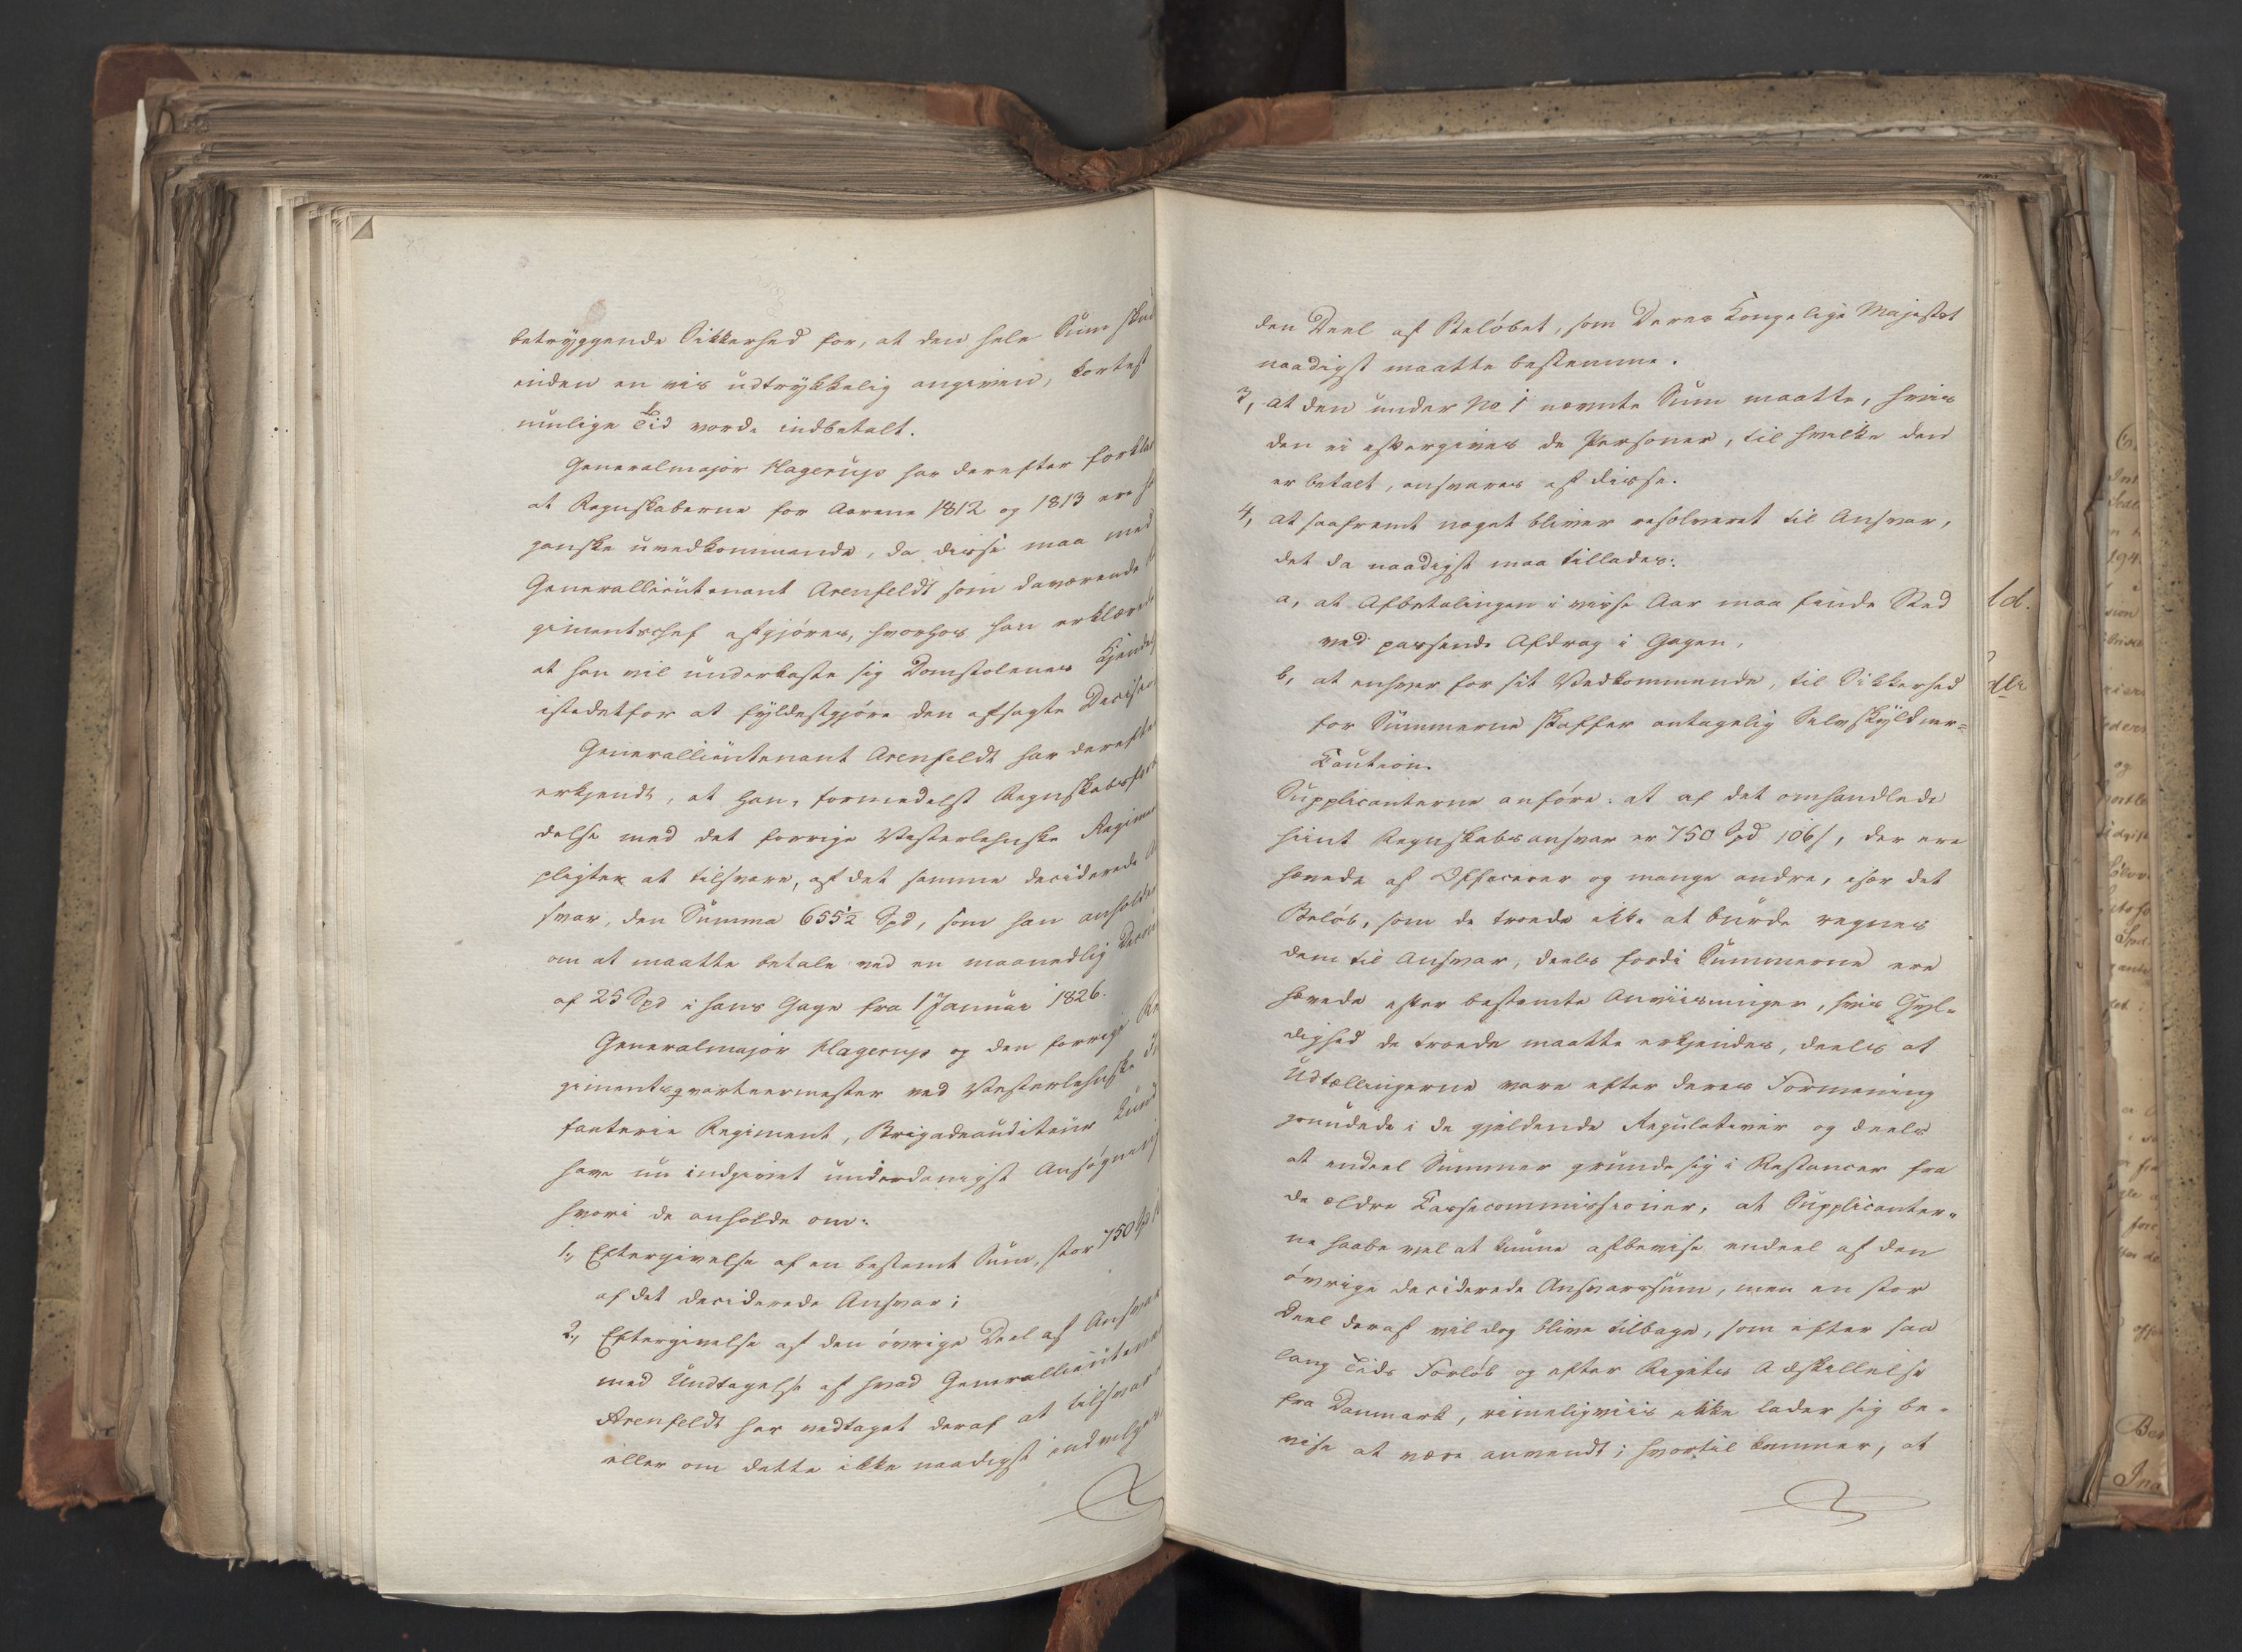 betryggende Sikkerhed for, at den hele Sum skul
inden en vis udtrykkelig angiven, kortest
mulige Tid vorde indbetalt.
Generalmajor Hagerup har derefter forklar
at Regnskaberne for Aarene 1812 og 1813 ere h
ganske uvedkommende, da disse maa med
Generallieutenant Arenfeldt som daværende
gimentschef afgjøres, hvorhos han erklærede
at han vil underkaste sig Domstolenes Kjendel
istedetfor at fyldestgjøre den afsagte Decision
Generallieutenant Arenfeldt har derefter
erkjendt, at han, formedelst Regnskabsforb
delse med det forrige Vesterlehnske Regimen
pligter at tilsvare, af det samme deciderede A
svar, den Summa 655½ Spd, som han anholder
om at maatte betale ved en maanedlig Decou
af 25 Spd i hans Gage fra 1 Januar 1826.
Generalmajor Hagerup og den forrige Re
gimentsqvarteermester ved Vesterlehnske In
fanterie Regiment, Brigadeauditeur Lund
have nu indgivet underdanigst Ansøgning
hvori de anholde om:
1., Eftergivelse af en bestemt Sum, stor 750 Spd
af det deciderede Ansvar;
2., Eftergivelse af den øvrige Deel af Ansvar
med Undtagelse af hvad Generallieutenant
Arenfeldt har vedtaget deraf at tilsvare
eller om dette ikke naadigst indvilges,
den Deel af Beløbet, som Deres Kongelige Majestæt
naadigst maatte bestemme.
3, at den under No 1 nævnte Sum maatte, hvis
den ei eftergives de Personer, til hvilke den
er betalt, ansvares af disse.
4, at saafremt noget bliver resolveret til Ansvar,
det da naadigst maa tillades:
a, at Afbetalingen i visse Aar maa finde Sted
ved passende Afdrag i Gagen,
b, at enhver for sit Vedkommende, til Sikkerhed
for Summerne skaffer antagelig Selvskyldner-
Caution.
Supplicanterne anføre: at af det omhandlede
Regnskabsansvar er 750 Spd 106 s, der ere
hævede af Officerer og mange andre, især det
Beløb, som de troede ikke at burde regnes
dem til Ansvar, deels fordi Summerne ere
hævede efter bestemte Anviisninger, hvis Gyl-
dighed de troede maatte erkjendes, deels at
Udtællingerne vare efter deres Formening
grundede i de gjældende Regulativer og deels
at endeel Summer grunde sig i Restancer fra
de ældre Cassecommissioner; at Supplicanter-
ne haabe vel at kunne afbevise endeel af den
øvrige deciderede Ansvarssum, men en stor
Deel deraf vil dog blive tilbage, som efter saa
lang Tids Forløb og efter Rigets Adskillelse
fra Danmark, rimeligviis ikke lader sig be-
vise at være anvendt; hvortil kommer, at